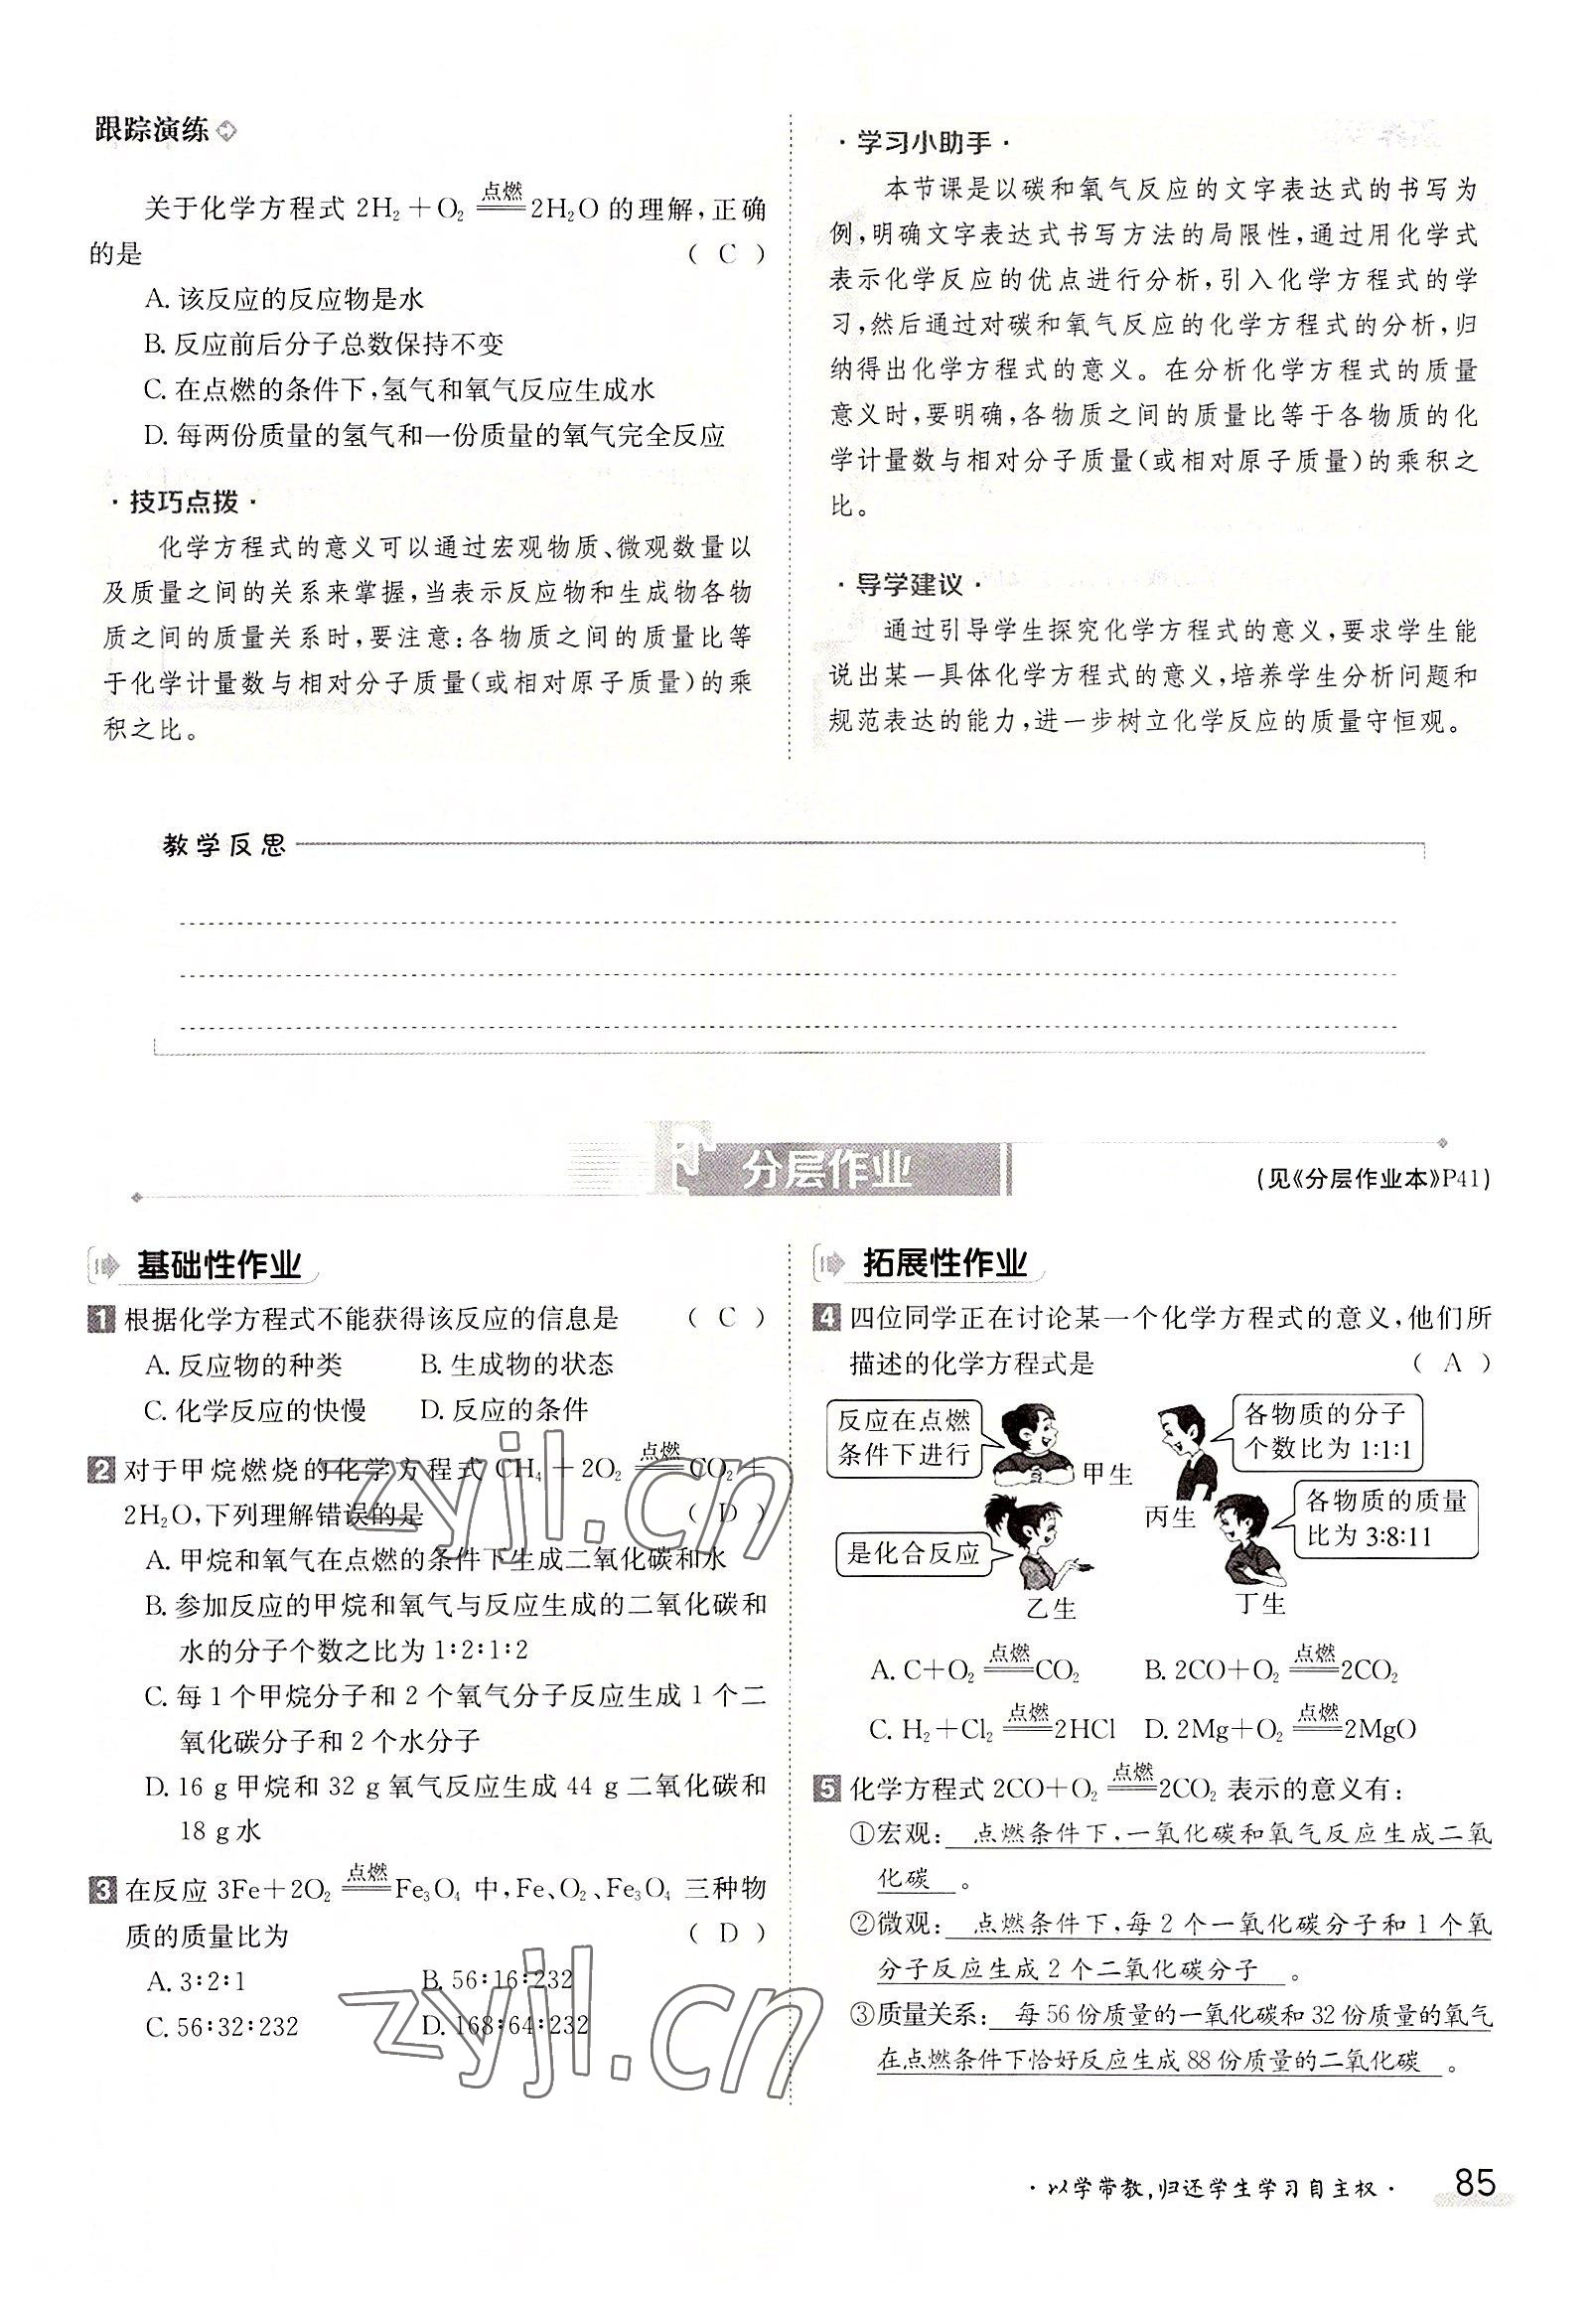 跟踪演练
关于化学方程式 2H₂+O₂ 点燃═══ 2H₂O 的理解,正确
的是 ( C )
A. 该反应的反应物是水
B. 反应前后分子总数保持不变
C. 在点燃的条件下,氢气和氧气反应生成水
D. 每两份质量的氢气和一份质量的氧气完全反应
·技巧点拨·
化学方程式的意义可以通过宏观物质、微观数量以
及质量之间的关系来掌握,当表示反应物和生成物各物
质之间的质量关系时,要注意:各物质之间的质量比等
于化学计量数与相对分子质量(或相对原子质量)的乘
积之比。
·学习小助手·
本节课是以碳和氧气反应的文字表达式的书写为
例,明确文字表达式书写方法的局限性,通过用化学式
表示化学反应的优点进行分析,引入化学方程式的学
习,然后通过对碳和氧气反应的化学方程式的分析,归
纳得出化学方程式的意义。在分析化学方程式的质量
意义时,要明确,各物质之间的质量比等于各物质的化
学计量数与相对分子质量(或相对原子质量)的乘积之
比。
·导学建议·
通过引导学生探究化学方程式的意义,要求学生能
说出某一具体化学方程式的意义,培养学生分析问题和
规范表达的能力,进一步树立化学反应的质量守恒观。
教学反思
分层作业
(见《分层作业本》P41)
基础性作业
1 根据化学方程式不能获得该反应的信息是 ( C )
A. 反应物的种类 B. 生成物的状态
C. 化学反应的快慢 D. 反应的条件
2 对于甲烷燃烧的化学方程式 CH₄+2O₂ 点燃═══ CO₂+
2H₂O,下列理解错误的是 ( D )
A. 甲烷和氧气在点燃的条件下生成二氧化碳和水
B. 参加反应的甲烷和氧气与反应生成的二氧化碳和
水的分子个数之比为 1∶2∶1∶2
C. 每 1 个甲烷分子和 2 个氧气分子反应生成 1 个二
氧化碳分子和 2 个水分子
D. 16 g 甲烷和 32 g 氧气反应生成 44 g 二氧化碳和
18 g 水
3 在反应 3Fe+2O₂ 点燃═══ Fe₃O₄ 中,Fe、O₂、Fe₃O₄ 三种物
质的质量比为 ( D )
A. 3∶2∶1 B. 56∶16∶232
C. 56∶32∶232 D. 168∶64∶232
拓展性作业
4 四位同学正在讨论某一个化学方程式的意义,他们所
描述的化学方程式是 ( A )
反应在点燃
条件下进行
甲生
各物质的分子
个数比为 1:1:1
丙生
是化合反应
乙生
各物质的质量
比为 3:8:11
丁生
A. C+O₂ 点燃═══ CO₂ B. 2CO+O₂ 点燃═══ 2CO₂
C. H₂+Cl₂ 点燃═══ 2HCl D. 2Mg+O₂ 点燃═══ 2MgO
5 化学方程式 2CO+O₂ 点燃═══ 2CO₂ 表示的意义有:
①宏观: 点燃条件下,一氧化碳和氧气反应生成二氧
化碳 。
②微观: 点燃条件下,每 2 个一氧化碳分子和 1 个氧
分子反应生成 2 个二氧化碳分子 。
③质量关系: 每 56 份质量的一氧化碳和 32 份质量的氧气
在点燃条件下恰好反应生成 88 份质量的二氧化碳 。
zyjl.cn
zyjl.cn
·以学带教,归还学生学习自主权· 85